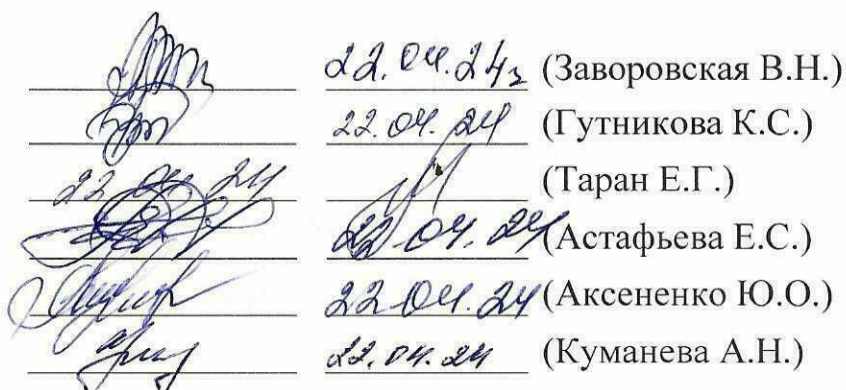 22.04.24г (Заворовская В.Н.)
22.04.24 (Гутникова К.С.)
22.04.24 (Таран Е.Г.)
22.04.24 (Астафьева Е.С.)
22.04.24 (Аксененко Ю.О.)
22.04.24 (Куманева А.Н.)